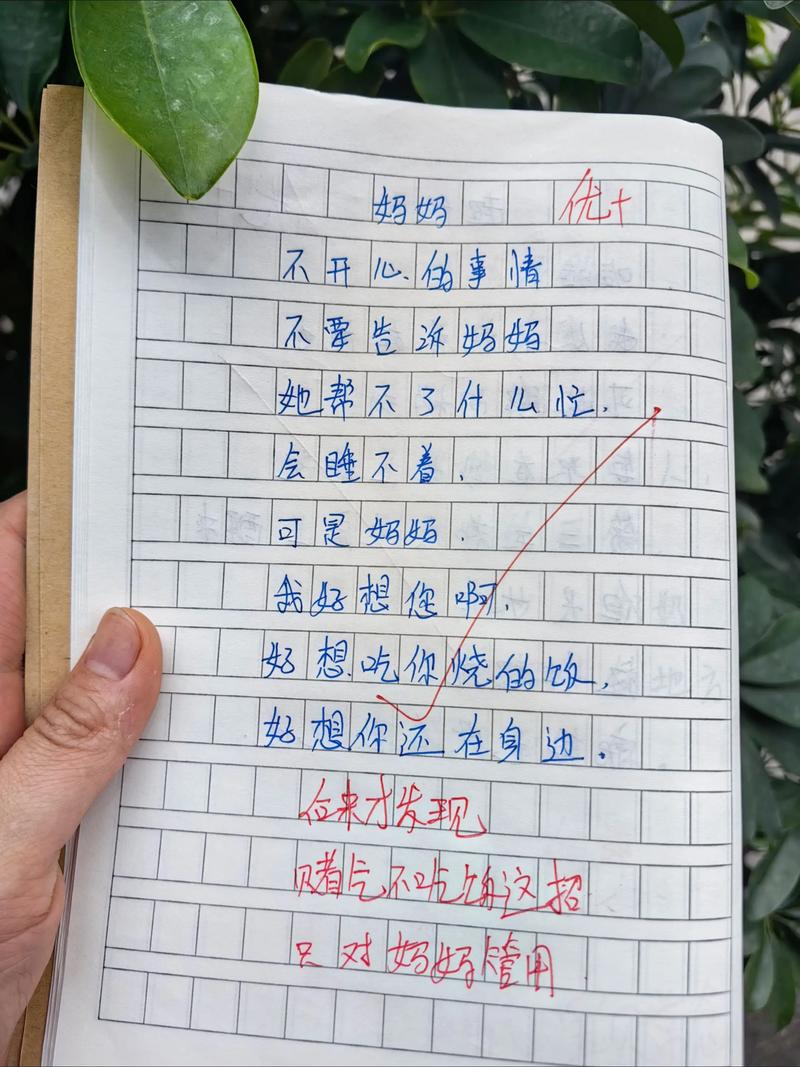 妈妈 优+
不开心的事情
不要告诉妈妈
她帮不了什么忙.
会睡不着.
可是妈妈.
我好想您啊.
好想吃你烧的饭.
好想你还在身边.
后来才发现
赌气不吃饭这招
只对妈妈管用